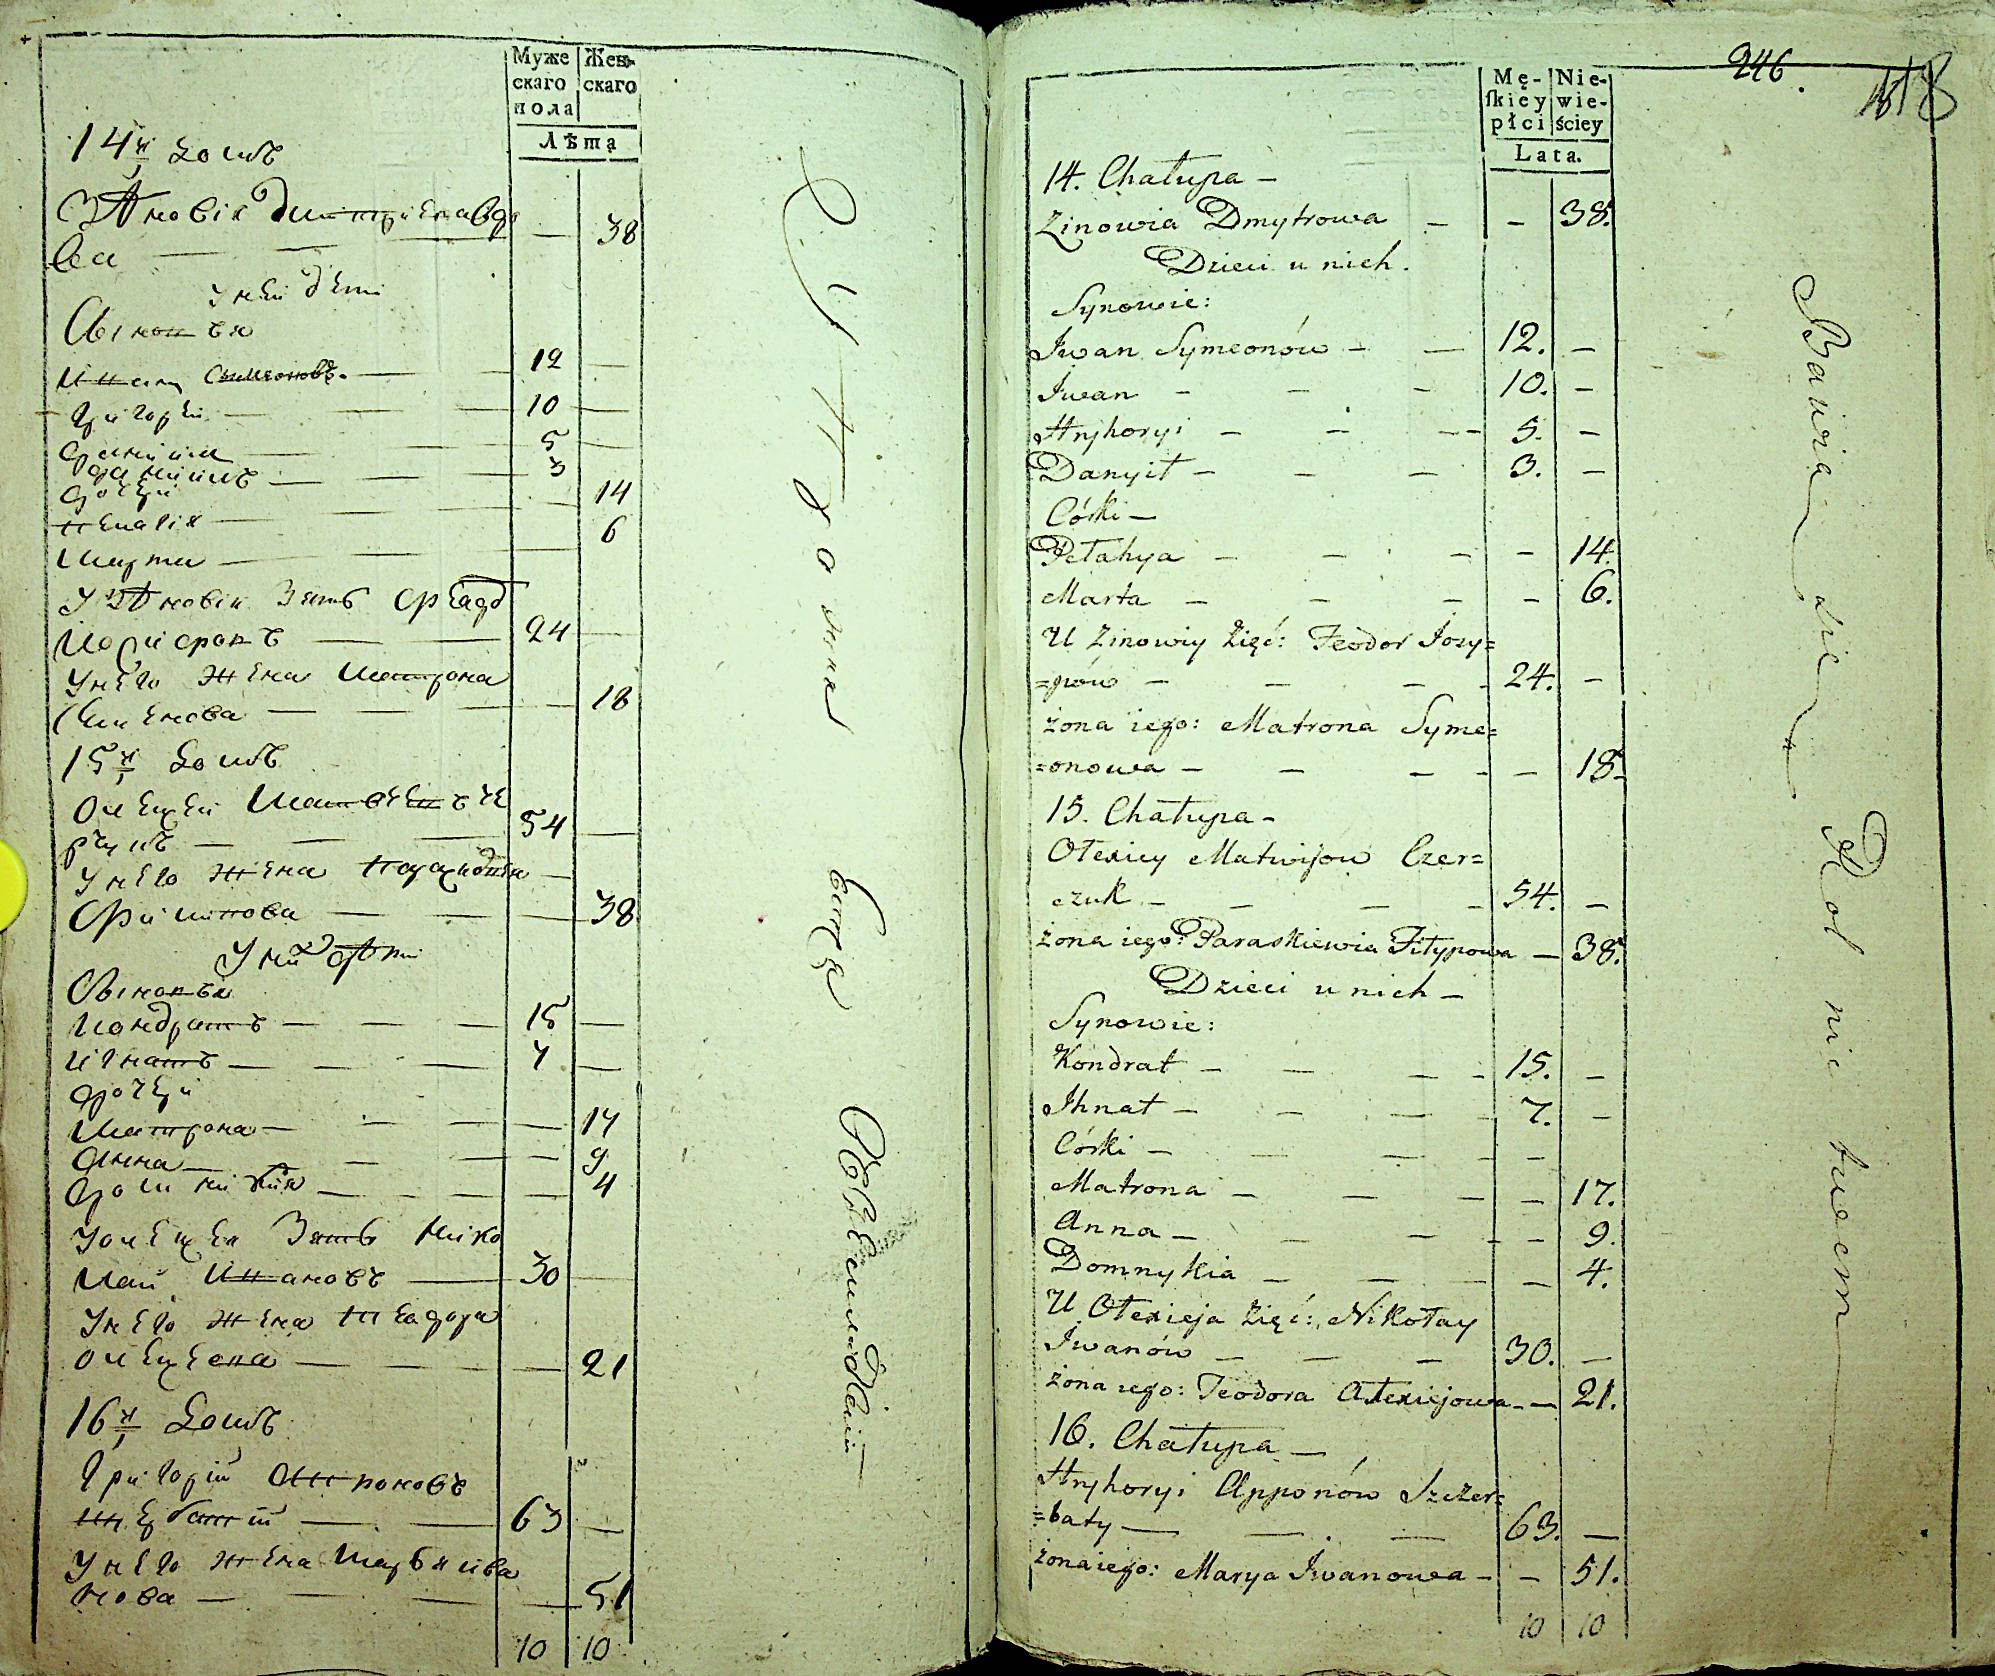 Муже
скаго
пола
Жен-
скаго
Лѣта
14й домъ
Зѣновія Дмитриева вдо
ва — — — 38
У неи дѣти
Сыновья
Иванъ Симеоновъ — — 12 —
Григорей — — — 10 —
Даниил — — — 5 —
Даниилъ — — — 3 —
дочери
Пелагія — — — 14
Марта — — — 6
У Зѣновіи Зять Ѳеадор
Иосифовъ — — 24 —
У него жена Матрона
Симонова — — — 18
15й домъ
Олексеи Матвеевъ Че
рчукъ — — — 54 —
У него жена Парасковия —
Филипова — — — 38
У них дѣти
Сыновья
Кондратъ — — — 15 —
Игнатъ — — — 7 —
дочери
Матрона — — — — 17
Анна — — — 9
Домникия — — — — 4
У Олексея Зять Нико
лай Ивановъ — 30 —
У него жена Теадора
Олексеева — — — 21
16й домъ
Григорій
щербатій — — 63 —
У него жена Марья Ива
нова — — — 51
10 10
246.
Mę-
skiey
płci
Nie-
wie-
ściey
Lata.
14. Chałupa —
Zinowia Dmytrowa — — 38.
Dzieci u nich.
Synowie:
Iwan Symeonów — — 12. —
Iwan — — — 10. —
Hryhoryi — — — 5. —
Danyił — — — 3. —
Córki —
Pełahya — — — — 14.
Marta — — — — 6.
U Zinowiy Zięć: Teodor Iozy=
=pów — — — 24. —
żona iego: Matrona Syme=
=onowa — — — — — 18.
15. Chałupa —
Ołexiey Matwijow Czer=
czuk — — — — 54. —
żona iego: Paraskiewia Filypowa — 38.
Dzieci u nich —
Synowie:
Kondrat — — — — 15. —
Ihnat — — — — 7. —
Córki — — — — —
Matrona — — — — 17.
Anna — — — — — 9.
Domnykia — — — — 4.
U Ołexieja Zięć: Nikołay
Iwanów — — — 30. —
żona iego: Teodora Ałexiejowa — — 21.
16. Chałupa —
Hryhoryi Apponów Szczer=
=baty — — — 63. —
żona iego: Marya Iwanowa — — 51.
10 10